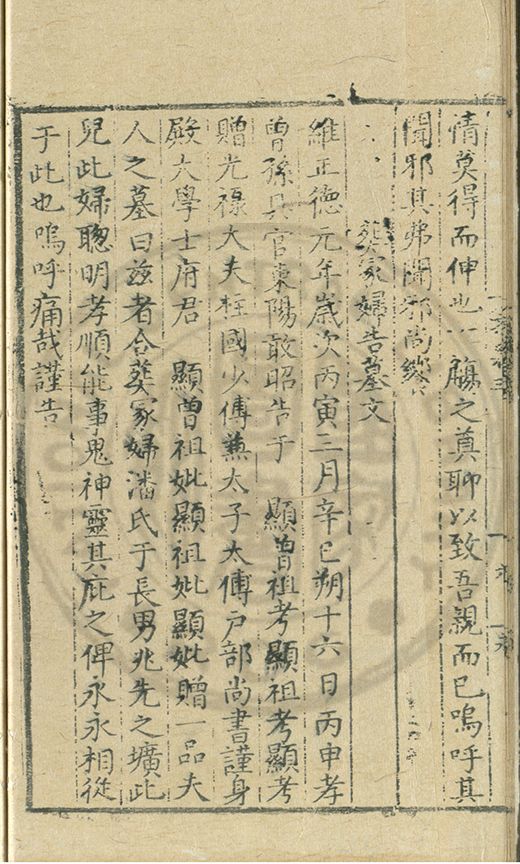 情莫得而伸也一觴之奠聊以致吾親而已嗚呼其
聞邪其弗聞邪尚饗
葬冢婦告墓文
維正德元年歲次丙寅三月辛巳朔十六日丙申孝
曾孫具官東陽敢昭告于 顯曾祖考顯祖考顯考
贈光祿大夫柱國少傅兼太子太傅戶部尚書謹身
殿大學士府君 顯曾祖妣顯祖妣顯妣贈一品夫
人之墓曰兹者合葬冢婦潘氏于長男兆先之壙此
兒此婦聰明孝順能事鬼神靈其庇之俾永永相從
于此也嗚呼痛哉謹告